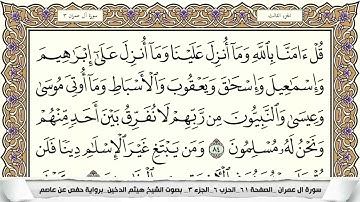 الجزء الثالث
سورة آل عمران ٣
قُلْ ءَامَنَّا بِٱللَّهِ وَمَآ أُنزِلَ عَلَيْنَا وَمَآ أُنزِلَ عَلَىٰٓ إِبْرَٰهِيمَ
وَإِسْمَٰعِيلَ وَإِسْحَٰقَ وَيَعْقُوبَ وَٱلْأَسْبَاطِ وَمَآ أُوتِىَ مُوسَىٰ
وَعِيسَىٰ وَٱلنَّبِيُّونَ مِن رَّبِّهِمْ لَا نُفَرِّقُ بَيْنَ أَحَدٍ مِّنْهُمْ
وَنَحْنُ لَهُۥ مُسْلِمُونَ ٨٤ وَمَن يَبْتَغِ غَيْرَ ٱلْإِسْلَٰمِ دِينًا فَلَن
سورة ال عمران _ الصفحة ٦١_ الحزب ٦_ الجزء ٣_ بصوت الشيخ هيثم الدخين_ برواية حفص عن عاصم